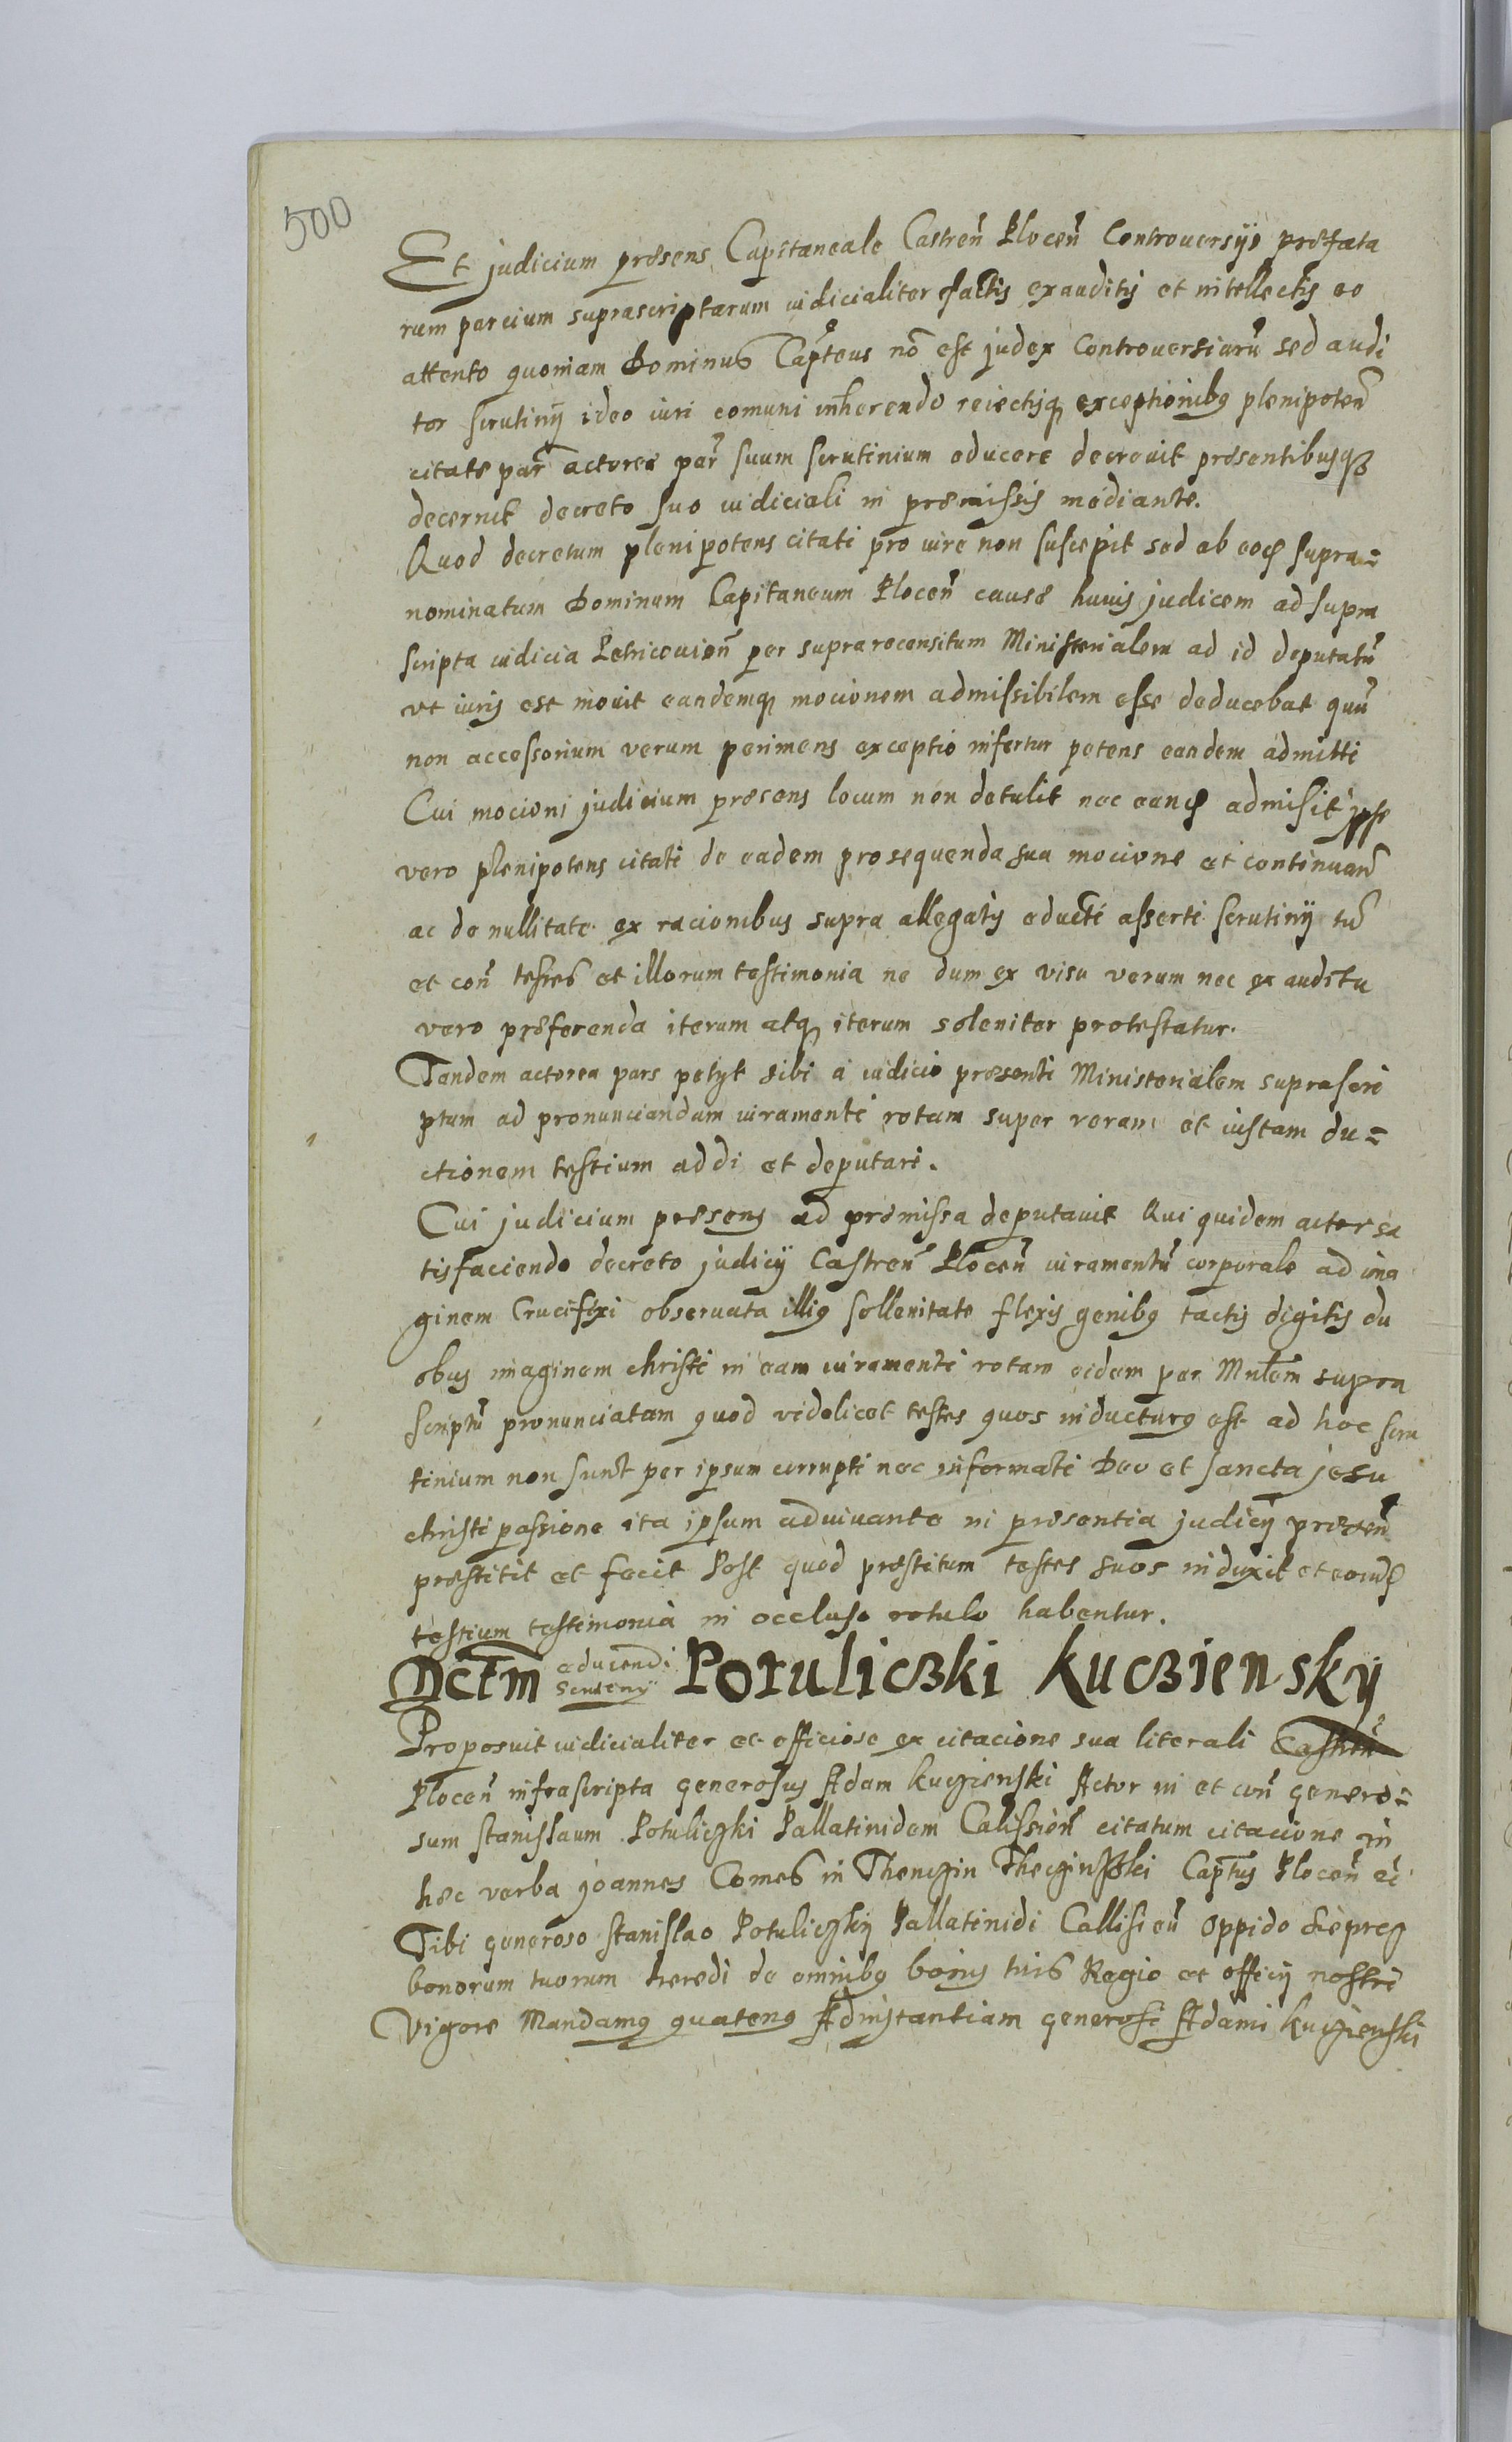 500
Et judicium præsens Capitaneale Castreñ Ploceñ Controuersÿs præfata
rum parcium suprascriptarum iudicialiter factis exauditis et intellectis eo
attento quoniam Dominus Capteus nõ est judex Controuersiarũ sed audi
tor scrutinÿ ideo iuri comuni inherendo reiectisq exceptionibq plenipoteñ
citatæ par actorea par suum scrutinium educere decreuit præsentibusqz
decernit decreto suo iudiciali in præmissis mediante.
Quod decretum plenipotens citati pro iure non suscepit sed ab eoq supra=
nominatum Dominum Capitaneum Plocen̄ causæ huius judicem ad supra
scripta iudicia Petricouien̄ per suprarecensitum Ministerialem ad id deputatũ
vt iuris est mouit eandemq mocionem admissibilem esse deducebat quũ
non accessorium verum perimens exceptio infertur petens eandem admitti
Cui mocioni judicium præsens locum non detulit nec eanq admisit ipse
vero plenipotens citati de eadem prosequenda sua mocione et continuan̄
ac de nullitate ex racionibus supra allegatis educti asserti scrutinÿ tũ
et con̄ testes et illorum testimonia ne dum ex visu verum nec ex auditu
vero præferenda iterum atq iterum soleniter protestatur.
Tandem actorea pars petyt sibi a iudicio præsenti Ministerialem suprascri
ptum ad pronunciandum iuramenti rotam super veram et iustam du=
ctionem testium addi et deputari.
Cui judicium præsens ad præmissa deputauit Qui quidem actor sa
tisfaciendo decreto judicÿ Castren̄ Plocen̄ iuramentũ corporale ad ima
ginem Crucifixi obseruata illiq sollenitate flexis genibq tactis digitis du
obus imaginem christi in eam iuramenti rotam eidem per Mnlem supra
scriptũ pronunciatam quod videlicet testes quos inducturq est ad hoc scru
tinium non sunt per ipsum corrupti nec informati Deo et sancta jesu
christi passione ita ipsum adiuuante in præsentia judicÿ præsen̄
præstitit et fecit Post quod præstitum testes suos induxit et eorudq
testium testimonia in occluso rotulo habentur.
Dctm educendi Scrutenÿ Potuliczki Kucziensky
Proposuit iudicialiter et officiose ex citacione sua literali Castren̄
Plocen̄ infrascripta generosus Adam Kuczienski Actor in et con̄ genero=
sum stanislaum Potuliczki Pallatinidem Calissien̄ citatum citacione in
hæc verba joannes Comes in Thenczin Thecginsski Captus Plocen̄ ec
Tibi generoso stanislao Potuliczky Pallatinidi Callisien̄ Oppido Sieprcz
bonorum tuorum heredi de omnibq bonis tuis Regio et officÿ nostri
Vigore Mandamq quatenq Adinstantiam generosi Adami Kuczienski